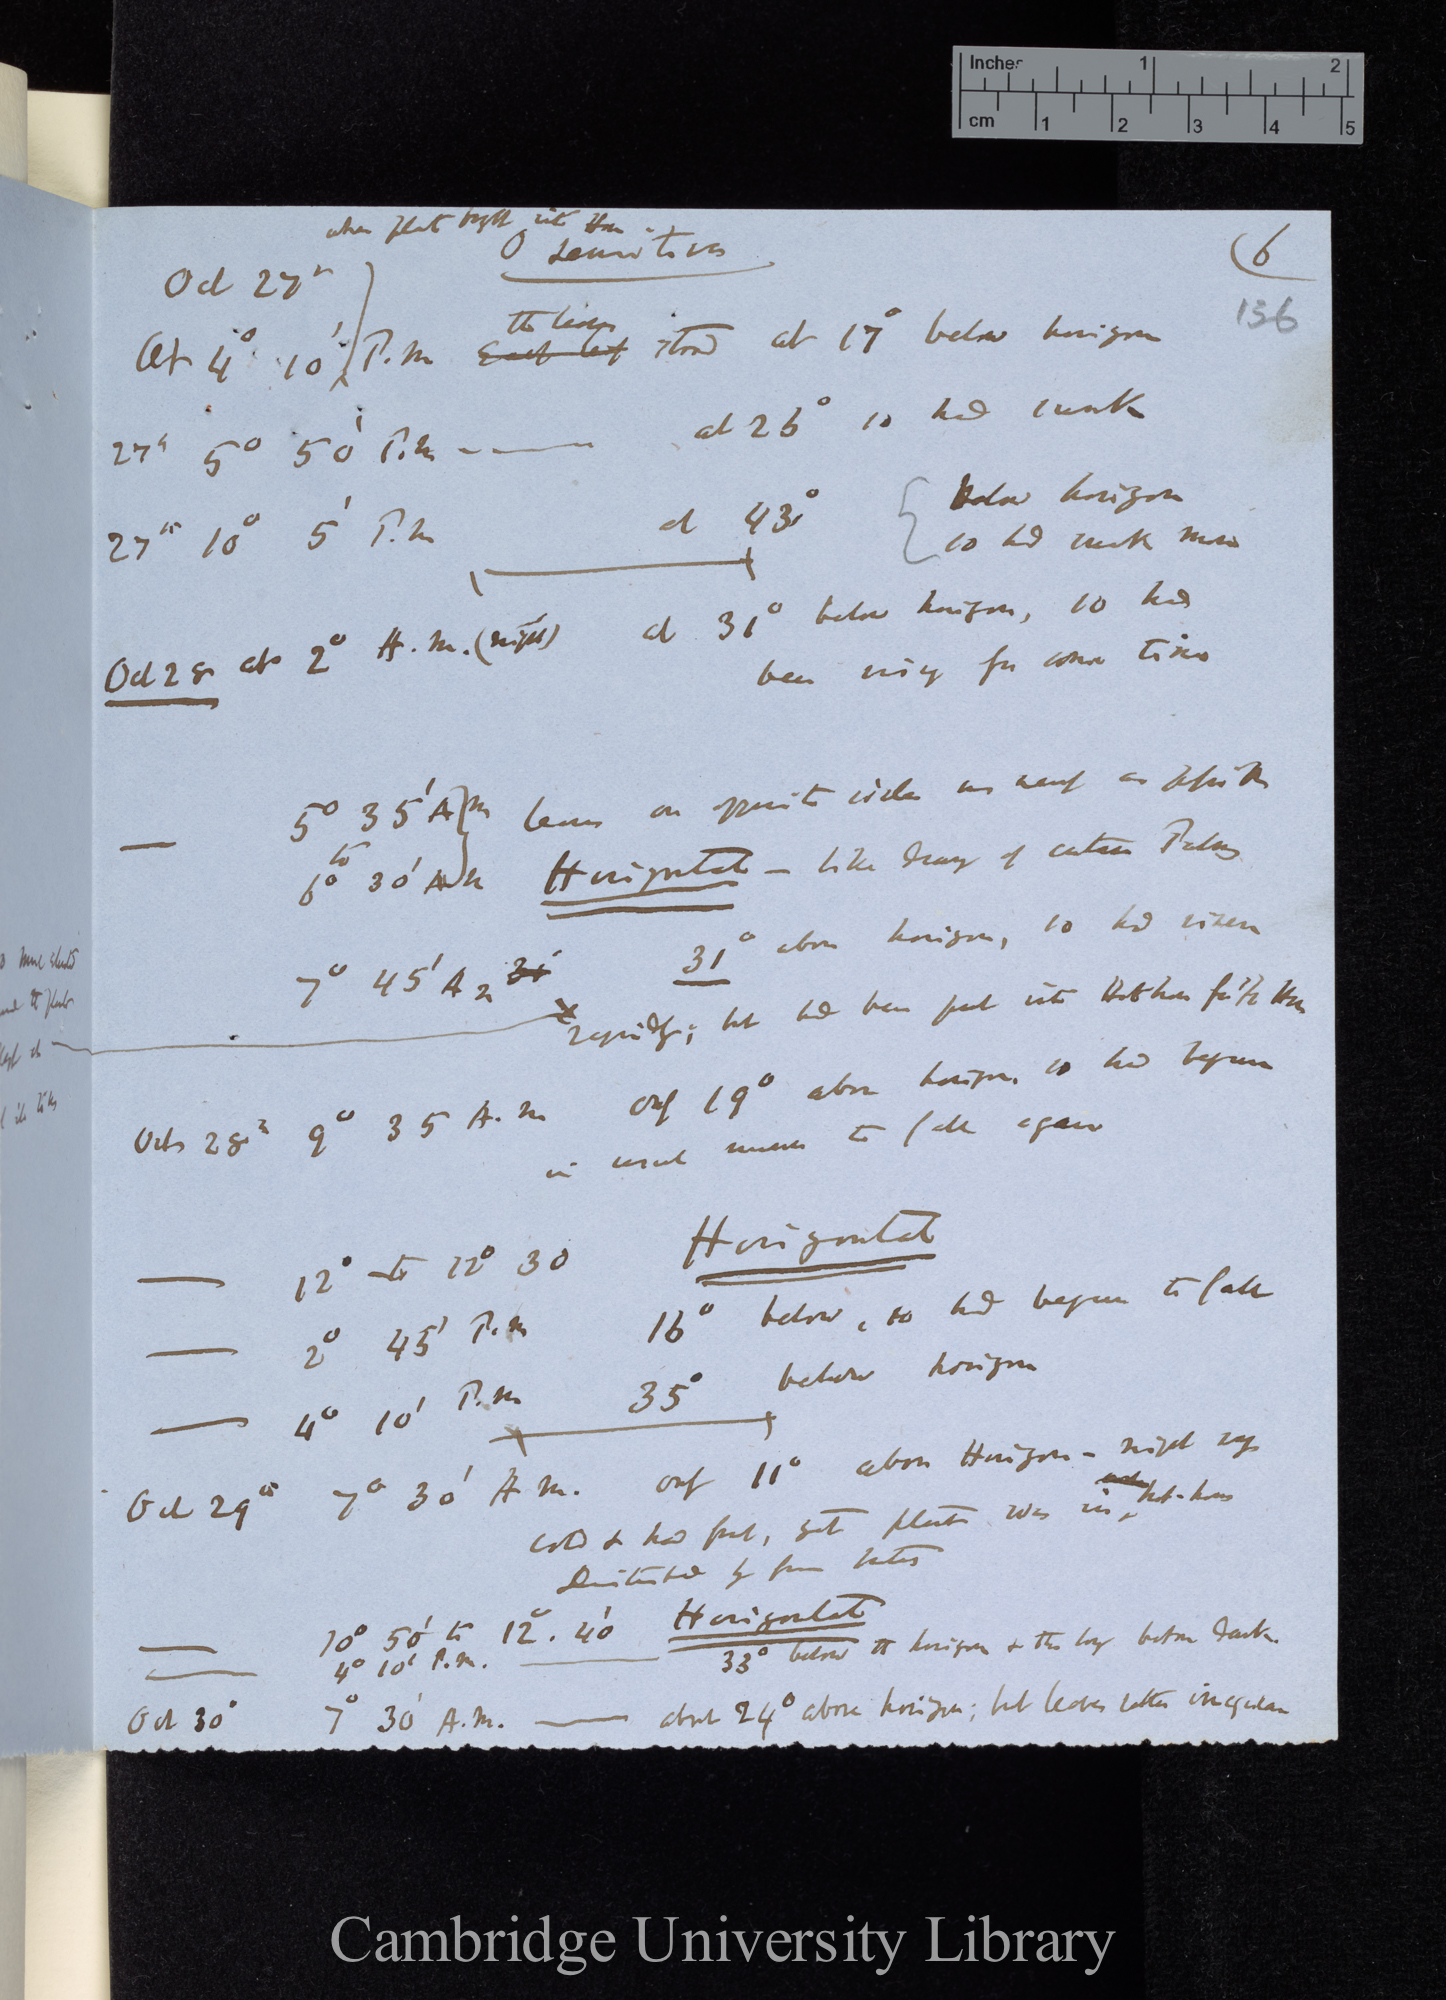 Inches 1 2
cm 1 2 3 4 5
when plant brought into House
O. sensitiva
(6
136
Oct 27th
At 4° 10' P.m the leaves Each leaf stood at 17° below horizon
27th 5° 50' P.m — at 26° so had sunk
27th 10° 5' P.m at 43° below horizon
so had sunk more
Oct 28 at 2° A.m. (night) at 31° below horizon, so had
been rising for some time
— 5° 35' A m leaves on opposite sides as nearly as possible
to
6° 30' A m Horizontal — like drawing of certain Palms
7° 45' A m 31° above horizon, so had risen
rapidly; but had been put into Hot-house for 1/2 Hour
Oct 28th 9° 35 A.m only 19° above horizon, so had begun
in usual manner to fall again
— 12° to 12° 30 Horizontal
— 2° 45' P.m 16° below, so had begun to fall
— 4° 10' P.m 35° below horizon
Oct 29th 7° 30' A m. only 11° above Horizon – night very
cold & hard frost, yet plant was in hot-house
by
— 10° 50' to 12°. 40' Horizontal
— 4° 10' P.m. — 33° below the horizon & this long before dark.
Oct 30° 7° 30' A.m. — about 24° above horizon; but leaves rather irregular
Cambridge University Library